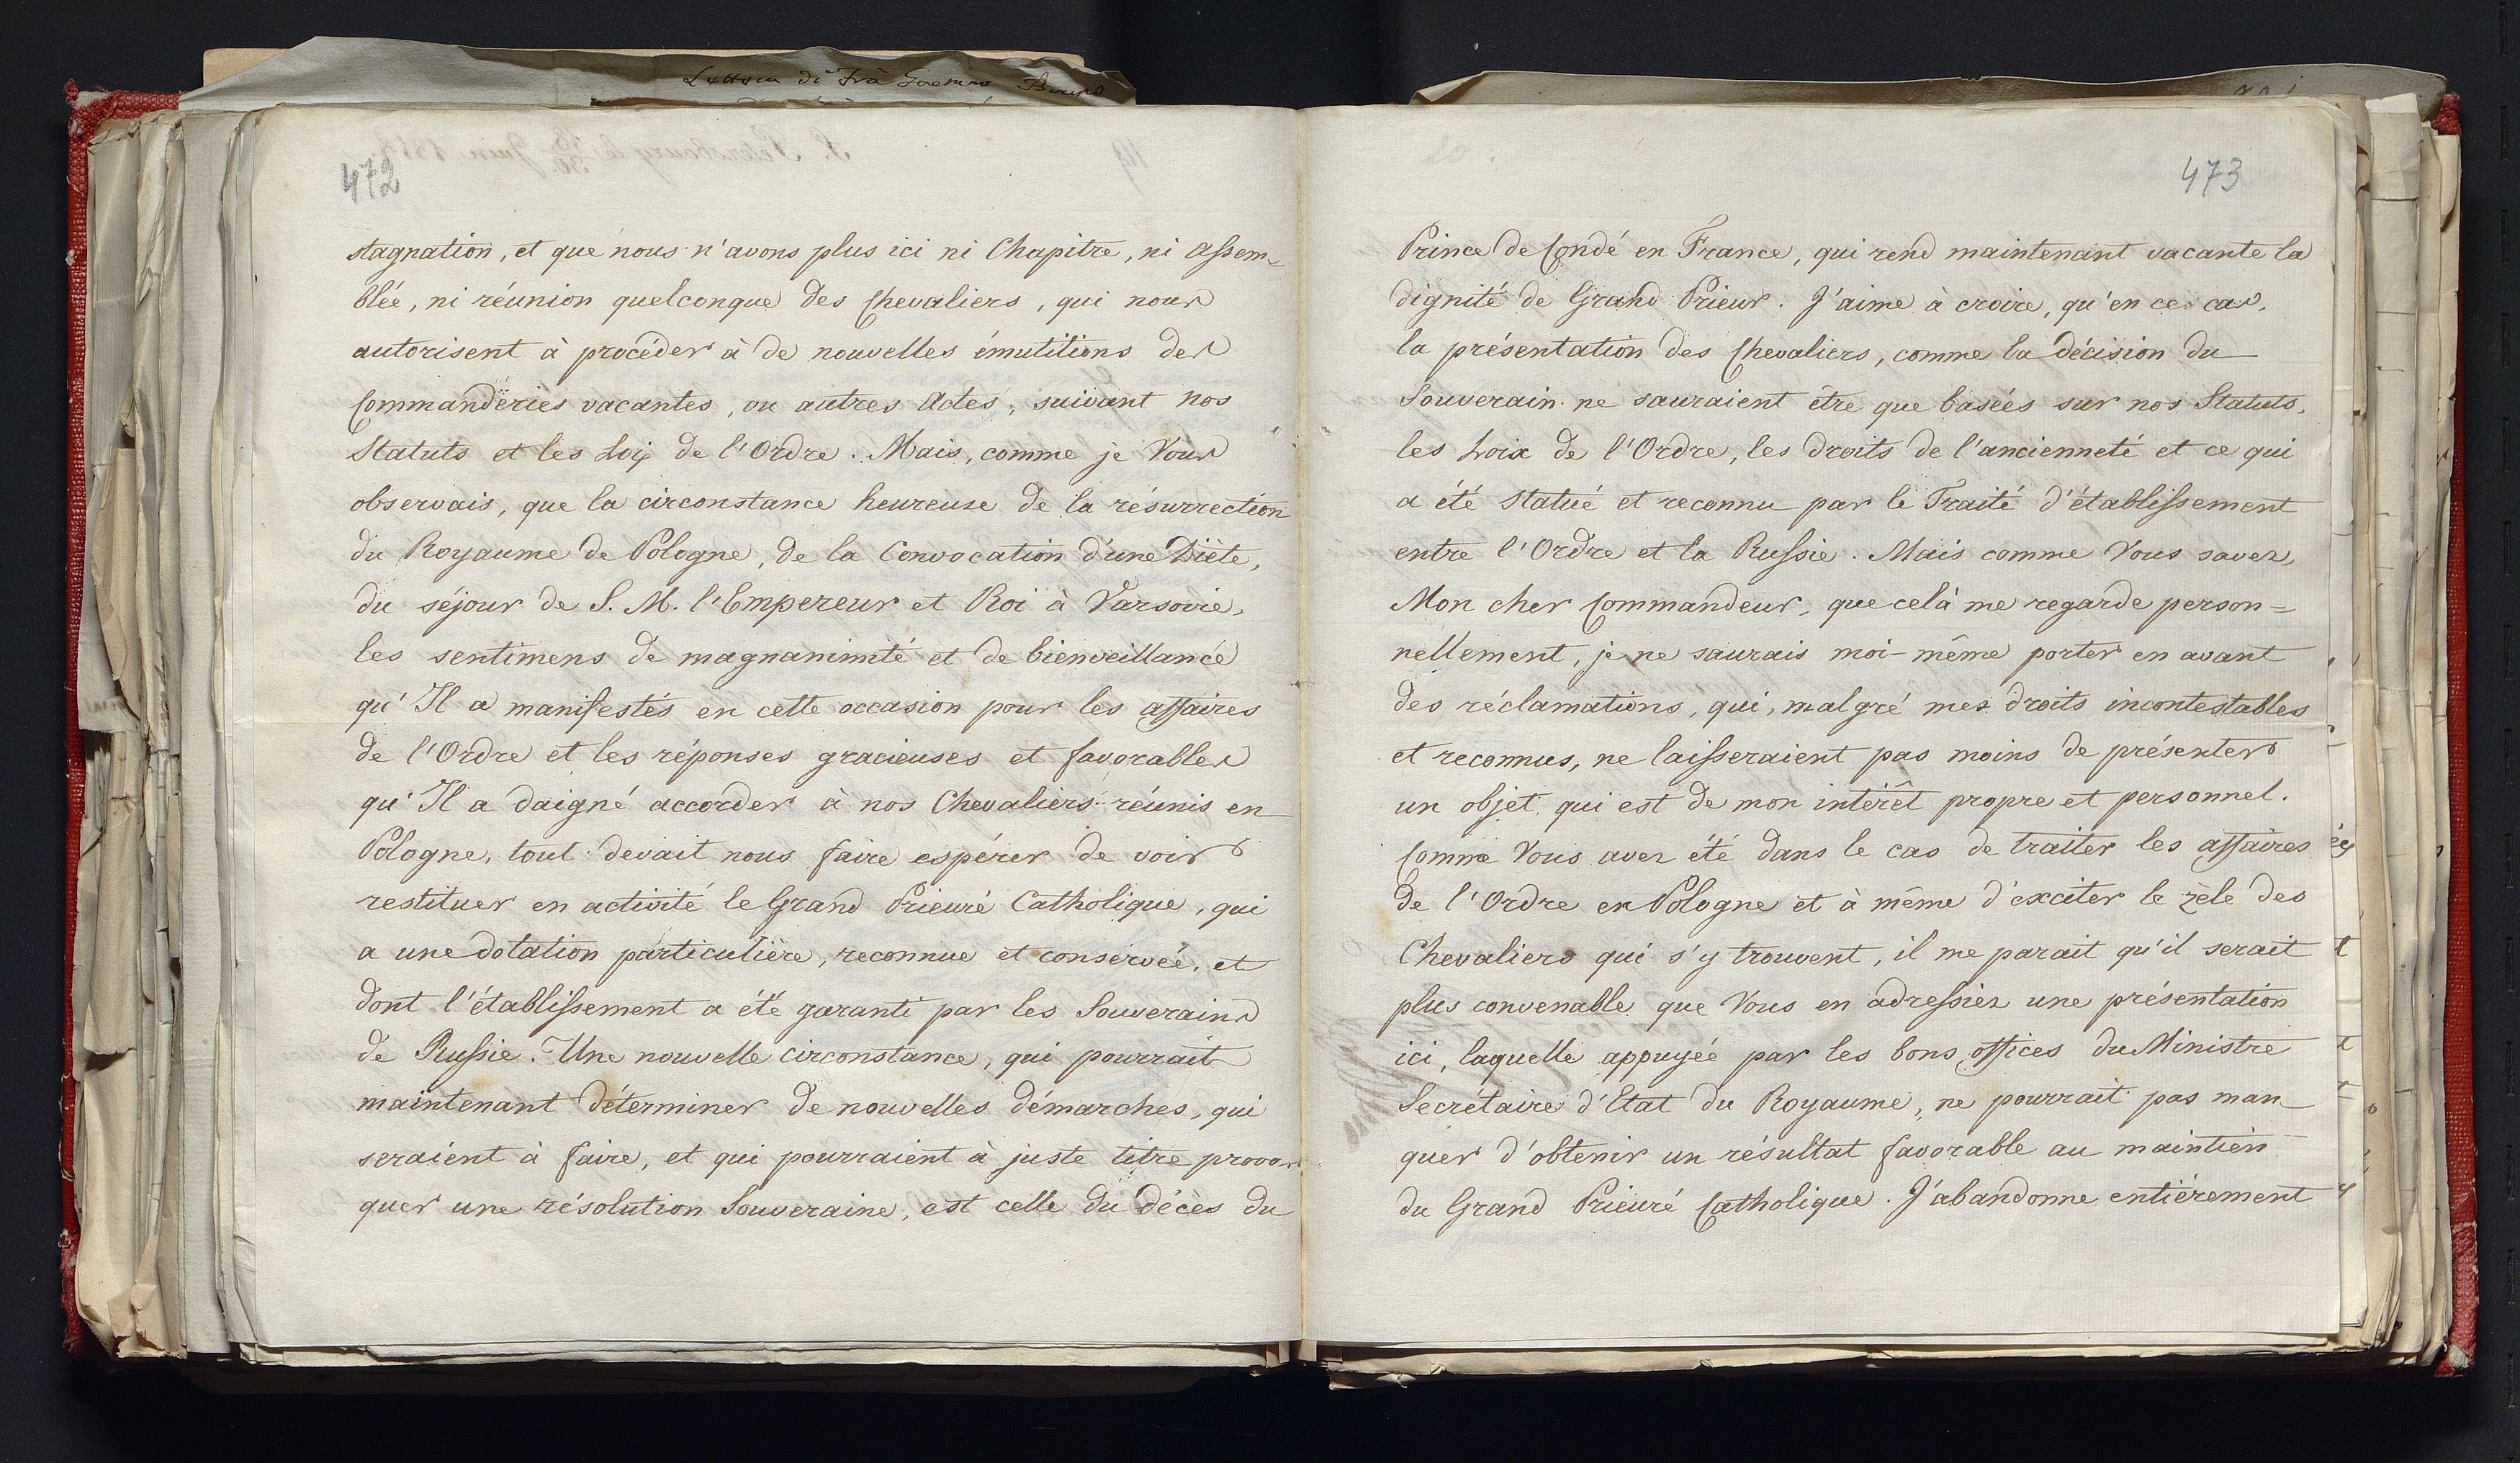 Lettera di Frà
472
stagnation, et que nous n'avons plus ici ni Chapitre, ni assem-
blée, ni réunion quelconque des Chevaliers, qui nous
autorisent à procéder à de nouvelles émutitions des
Commanderies vacantes, ou autres Actes, suivant nos
Statuts et les Loix de l'Ordre. Mais, comme je Vous
observais, que la circonstance heureuse de la résurrection
du Royaume de Pologne, de la Convocation d'une Diète,
du séjour de S. M. l'Empereur et Roi à Varsovie,
les sentimens de magnanimité et de bienveillance
qu'Il a manifestés en cette occasion pour les affaires
de l'Ordre et les réponses gracieuses et favorables
qu'Il a daigné accorder à nos Chevaliers réunis en
Pologne, tout devait nous faire espérer de voir
restituer en activité le Grand Prieuré Catholique, qui
a une dotation particulière, reconnue et conservée, et
dont l'établissement a été garanti par les Souverains
de Russie. Une nouvelle circonstance, qui pourrait
maintenant déterminer de nouvelles démarches, qui
seraient à faire, et qui pourraient à juste titre provo-
quer une résolution Souveraine, est celle du décès du
473
Prince de Condé en France, qui rend maintenant vacante la
dignité de Grand Prieur. J'aime à croire, qu'en ce cas,
la présentation des Chevaliers, comme la décision du
Souverain ne sauraient être que basées sur nos Statuts,
les Loix de l'Ordre, les droits de l'ancienneté et ce qui
a été statué et reconnu par le Traité d'établissement
entre l'Ordre et la Russie. Mais comme Vous savez,
Mon cher Commandeur, que celà me regarde person=
nellement, je ne saurais moi-même porter en avant
des réclamations, qui, malgré mes droits incontestables
et reconnus, ne laisseraient pas moins de présenter
un objet qui est de mon intérêt propre et personnel.
Comme Vous avez été dans le cas de traiter les affaires
de l'Ordre en Pologne et à même d'exciter le zèle des
Chevaliers qui s'y trouvent, il me parait qu'il serait
plus convenable que Vous en adressiez une présentation
ici, laquelle appuyée par les bons offices du Ministre
Secrétaire d'Etat du Royaume, ne pourrait pas man-
quer d'obtenir un résultat favorable au maintien
du Grand Prieuré Catholique. J'abandonne entièrement